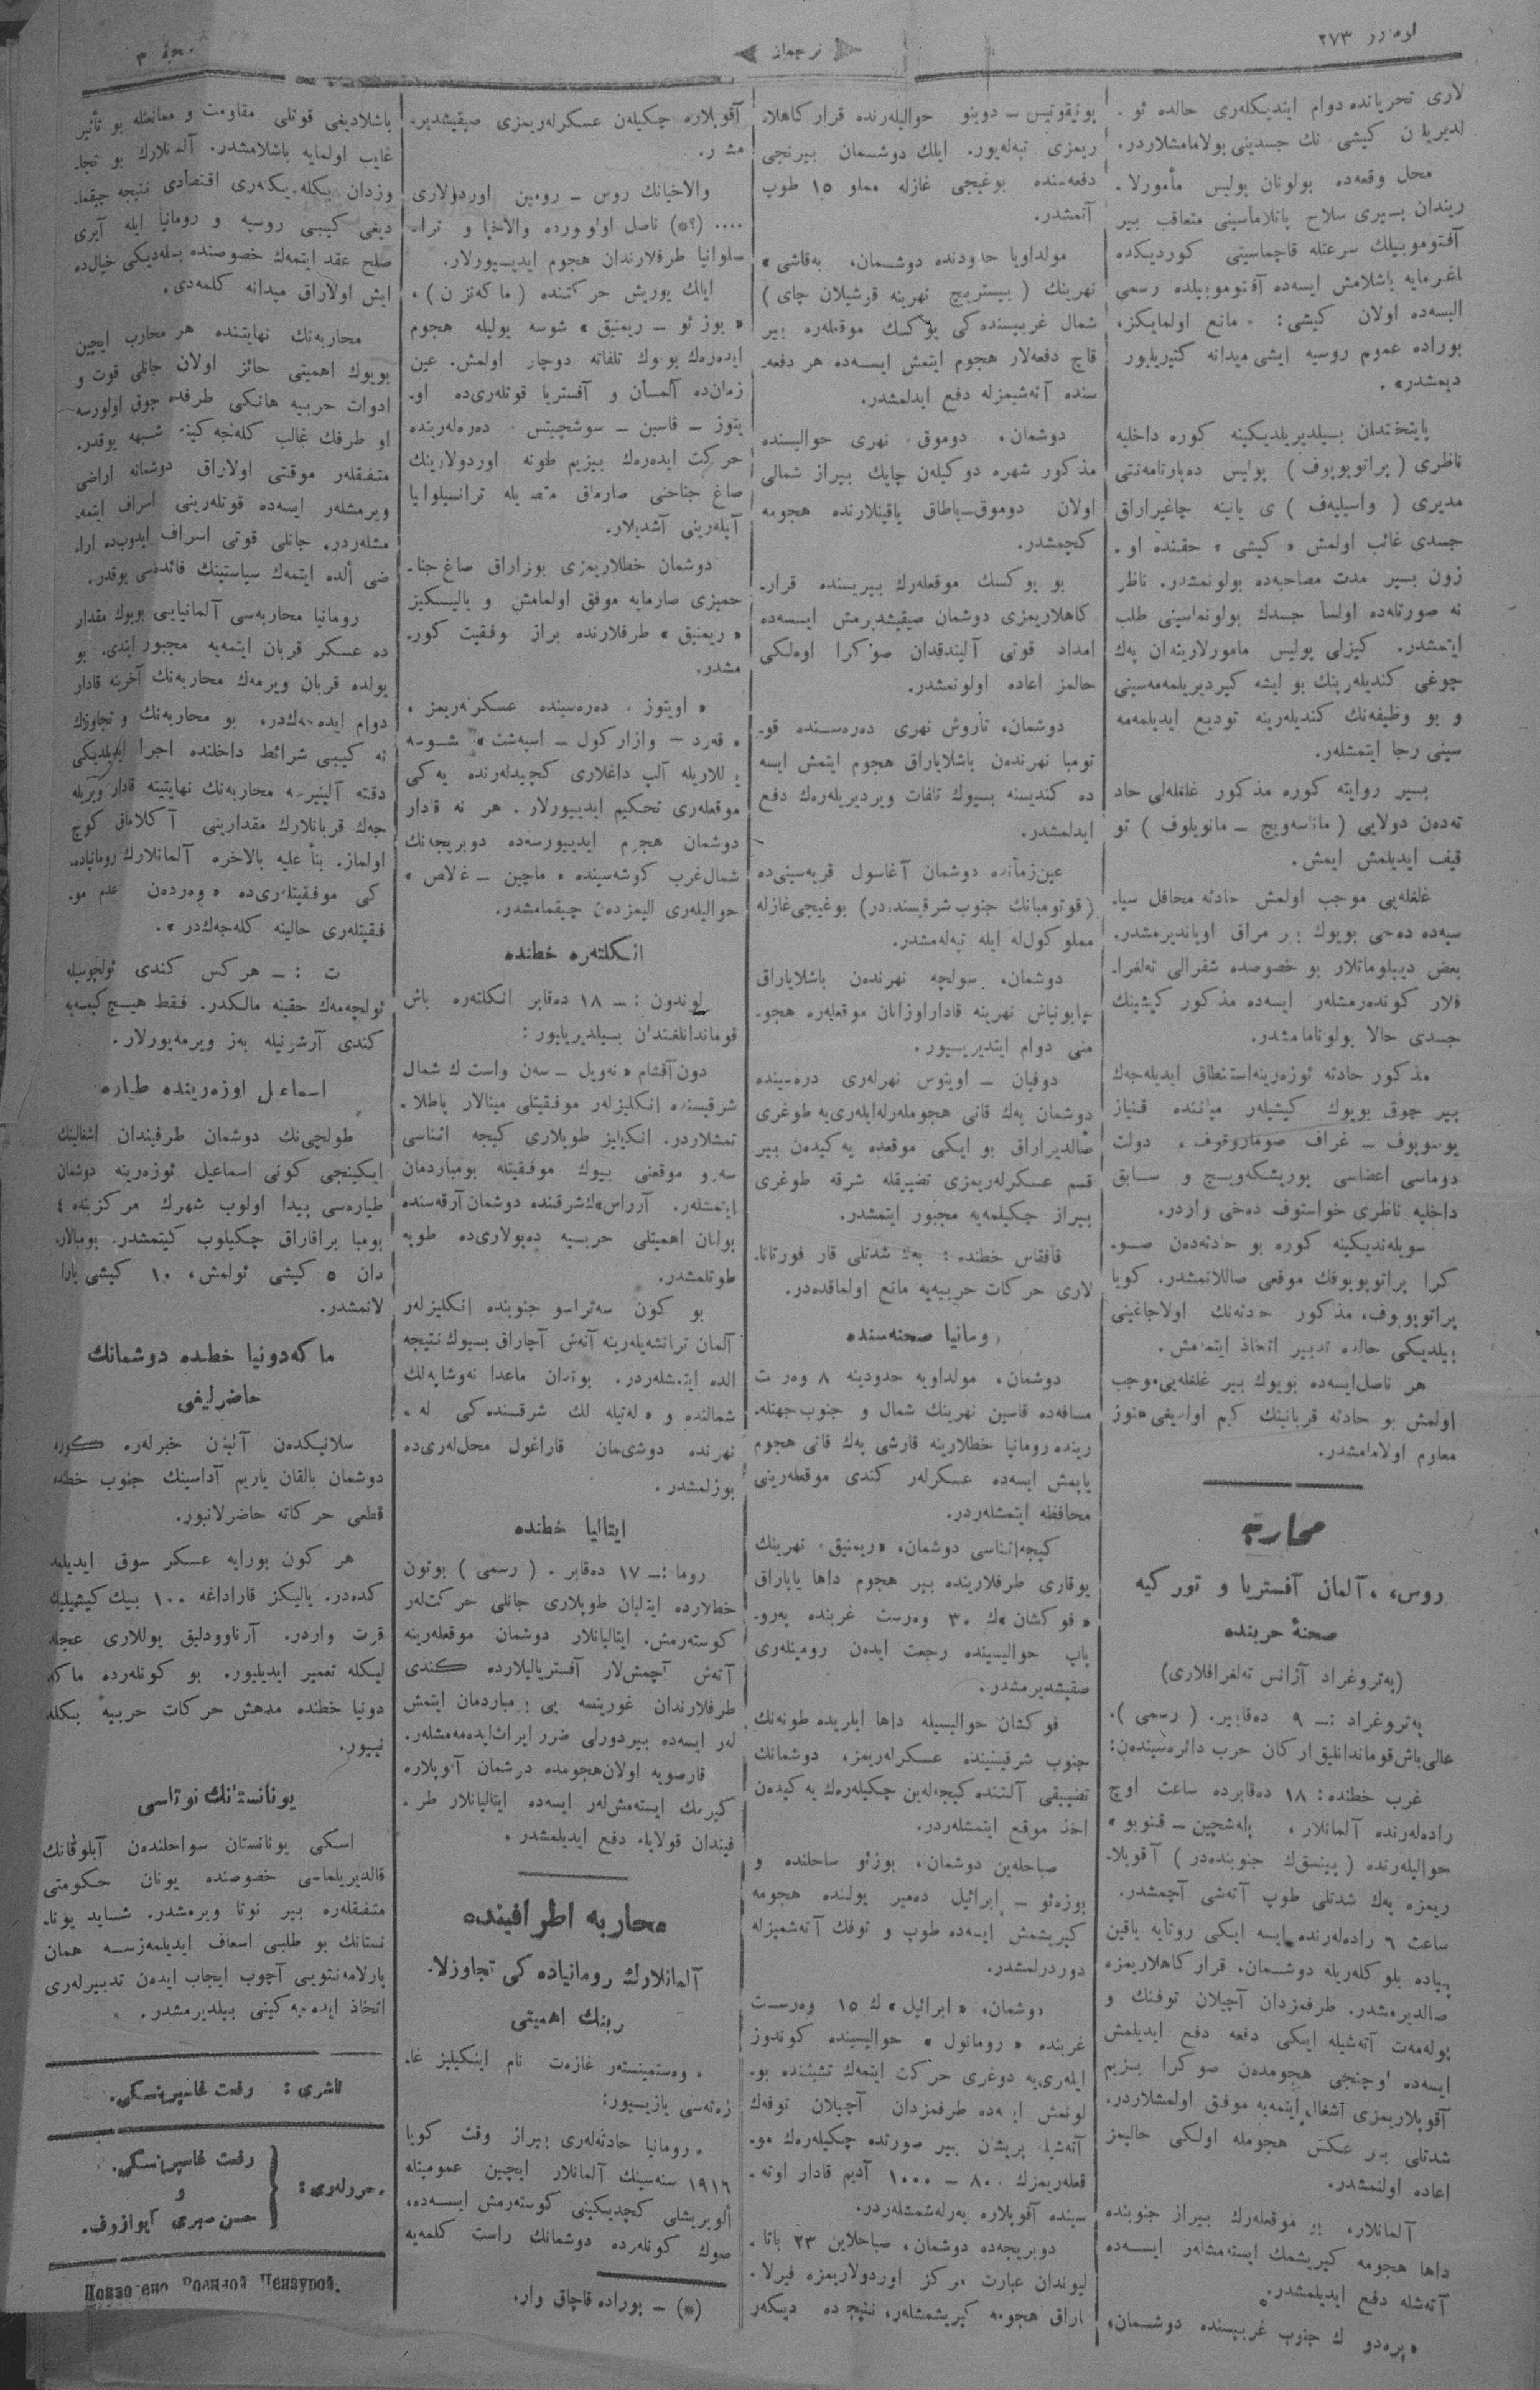 نومرو ۲۷۳
ترجمان
صحیفه ۳
لاری تحریاتده دوام ایتدیكلەری حالده ئو ـ
لدیریلان كیشی نك جسدینی بولامامشلاردر.
محل وقعەده بولونان پولیس مأمورلا ـ
ریندان بـیری سلاح پاتلاماسینی متعاقب بیر
آفتوموبیلك سرعتله قاچماسیتی كوردیكده
باغرمایه باشلامش ایسەده آفتوموبیلده رسمی
البسەده اولان كیشی: مانع اولمایكز،
بوراده عموم روسیه ایشی میدانه كتیریلیور
دیمشدر» .
پایتختدان بـیلدیریلدیكینه كوره داخلیه
ناظری ( پراتوپوپوف ) پولیس دەپارتامەنتی
مدیری ( واسیلیەف ) ی یانینه چاغیراراق
جسدی غائب اولمش « كیشی » حقنده او ـ
زون بـیر مدت مصاحبەده بولونمشدر. ناظر
نه صورتلەده اولسا جسدك بولونماسینی طلب
ایتمشدر. كیزلی پولیس مامورلاریندان پەك
چوغی كندیلەرینك بو ایشه كیردیریلمەمەسینی
و بو وظیفەنك كندیلەرینه تودیع ایدیلمەمە
سینی رجا ایتمشلەر.
بـیر روایته كوره مذكور غلغلەلی حاد
ثەدەن دولایی ( ماناسەویچ ـ مانویلوف ) تو
قیف ایدیلمش ایمش.
غلغلەیی موجب اولمش حادثه محافل سیا-
سیەده دەخی بویوك بیر مراق اویاندیرمشدر.
بعض دیپلوماتلار بو خصوصده شفرالی تەلغرا-
فلار كوندەرمشلەر ایسەده مذكور كیشینك
جسدی حالا بولونامامشدر.
مذكور حادثه ئوزەرینه استنطاق ایدیلەجەك
بیر چوق بویوك كیشیلەر میاننده قنیاز
یوسوپوف ـ غراف صوماروقوف ، دولت
دوماسی اعضاسی پوریشكەویـچ و سـابق
داخلیه ناظری خواستوف دەخی واردر.
سویلەندیكینه كوره بو حادثەدەن صـو-
كرا پراتوپوپوفك موقعی صاللانمشدر. كویا
پراتوپوپوف، مذكور حادثەنك اولاجاغینی
بیلدیكی حالده تدبیر اتخاذ ایتمەمش.
هر ناصل ایسەده بویوك بیر غلغلەیی موجب
اولمش بو حادثه قربانینك كیم اولدیغی هنوز
معلوم اولامامشدر.
محاربه
روس، ، آلمان آفستریا و توركیه
صحنهٔ حربنده
(پەتروغراد آژانس تەلغرافلاری)
پەتروغراد :ـ ۹ دەقابیر. ( رسمی ).
عالی باش قوماندانلیق اركان حرب دائرەسیندەن:
غرب خطنده: ۱۸ دەقابرده ساعت اوچ
رادەلەرنده آلمانلار ، پلەشچین ـ قنویو »
حوالیلەرنده ( پینسقك جنوبندەدر ) آقوپلا-
ریمزه پەك شدتلی طوپ آتەشی آچمشدر.
ساعت ٦ رادەلەرنده ایسه ایكی روتایه یاقین
پیاده بلوكلەریله دوشـمان، قراركاهلاریمزه
صالدیرمشدر. طرفمزدان آچیلان توفنك و
پولەمەت آتەشیله ایـكی دفعه دفع ایدیلمش
ایسەده اوچنجی هجومدەن صوكرا بـیزم
آقوپلاریمزی اشغالی ایتمەیه موفق اولمشلاردر.
شدتلی بیر عكس هجومله اولكی حالیمز
اعاده اولنمشدر.
آلمانلار، بو موقعلەرك بیراز جنوبنده
داها هجومه كیریشمك ایستەمشلەر ایسـەده
آتەشله دفع ایدیلمشدر.
« پرەدو ك جنوب غربیسنده دوشـمان،
پونیقوتیس ـ دوبنو حوالیلەرنده قراركاهلا-
ریمزی تپەلەیور. ایلك دوشـمان بیرنجی
دفعەسنده بوغیجی غازله مملو ۱٥ طوپ
آتمشدر.
مولداویا حدودنده دوشـمان، بەقاشی »
نهرینك ( بیستریچ نهرینه قوشیلان چای )
شمال غربیسندەكی یوكسك موقعلەره بیر
قاچ دفعەلار هجوم ایتمش ایسـەده هر دفعە-
سنده آتەشیمزله دفع ایدلمشدر.
دوشمان، دوموق نهری حوالیسنده
مذكور شهره دوكیلەن چایك بیراز شمالی
اولان دوموق-پاطاق یاقینلارنده هجومه
كچمشدر.
بو یوكسك موقعلەرك بیریسنده قرار-
كاهلاریمزی دوشمان صیقیشدیرمش ایـسەده
امداد قوتی آلیندقدان صوكرا اوەلكی
حالمز اعاده اولونمشدر.
دوشمان، تاروش نهری دەرەسـنده قو-
تومبا نهرندەن باشلایاراق هجوم ایتمش ایسه
ده كندیسنه بـیوك تلفات ویردیریلەرەك دفع
ایدلمشدر.
عین زماننده دوشمان آغاسول قریەسینی ده
(قوتومبانك جنوب شرقیسندەدر) بوغیجی غازله
مملو كولەله ایله تپەلەمشدر.
دوشمان، سولچه نهرندەن باشلایاراق
چابونیاش نهرینه قادار اوزانان موقعلەره هجو-
منی دوام ایتدیریـیور.
دوفیان ـ اویتوس نهرلەری درەسینده
دوشمان پەك قاتی هجوملەرله ایلەری یه طوغری
صالدیراراق بو ایكی موقعده یەكیدەن بیر
قسم عسكرلەریمزی تضییقله شرقه طوغری
بیراز چكیلمەیه مجبور ایتمشدر.
قافقاس خطنده : پەك شدتلی قار فورتانا-
لاری حركات حربیەیه مانع اولماقدەدر.
رومانیا صحنەسنده
دوشمان، مولداویه حدودینه ۸ وەرست
مسافەده قاسین نهرینك شمال و جنوب جهتلە-
رینده رومانیا خطلارینه قارشی پەك قاتی هجوم
یاپمش ایسەده عسكرلەر كندی موقعلەرینی
محافظه ایتمشلەردر.
كیجه اثناسی دوشمان، «ریمنیق» نهرینك
یوقاری طرفلارینده بیر هجوم داها یاپاراق
« فوكشان »ك ۳۰ وەرست غربنده پەرو-
باپ حوالیسینده رجعت ایدەن رومینلەری
صقیشدیرمشدر.
فوكشان حوالیسیله داها ایلریده طونەنك
جنوب شرقیسینده عسكرلەریمز، دوشمانك
تضییقی آلتنده كیجەلەین چكیلەرەك یەكیدەن
اخذ موقع ایتمشلەردر.
صباحلەین دوشمان، بوزئو ساحلنده و
بوزەئو ـ ابرائیل دەمیر یولنده هجومه
كیریشمش ایسەده طوپ و توفك آتەشمیزله
دوردرلمشدر.
دوشمان، «ابرائیل»ك ۱٥ وەرسـت
غربنده « رومانول » حوالیسینده كوندوز
ایلەری یه دوغری حركت ایتمەك تشبثنده بو-
لونمش ایسەده طرفمزدان آچیلان توفەك
آتەشیله پریشان بیر صورتده چكیلەرەك مو-
قعلەریمزك ۸۰۰ ـ ۱۰۰۰ آدیم قادار اوتە-
سینده آقوپلاره یەرلەشمشلەردر.
دوبریجەده دوشمان، صباحلاین ۲۳ باتا ـ
لیوندان عبارت مركز اوردولاریمزه فیرلا-
یاراق هجومه كیریشمشلەر، نتیجەده دیكەر
آقوپلاره چكیلەن عسكرلەریمزی صیقیشدیر-
مشدر.
والاخیانك روس ـ رومین اوردولاری
.... (؟*) ناصل اولوورده والاخیا و ترا-
سلوانیا طرفلارندان هجوم ایدیـیورلار.
ایلك یوریش حركتنده ( ماكەنزن ) ،
« بوزئو ـ ریمنیق » شوسه یولیله هجوم
ایدەرەك بویوك تلفاته دوچار اولمش. عین
زمان ده آلمـان و آفستریا قوتلەری ده او-
یتوز ـ قاسین ـ سوشچیتس ، دەرەلەرینده
حركت ایدەرەك بیزیم طونه اوردولارینك
صاغ جناحنی صارماق مقصدیله ترانسیلوانیا
آلپلەرینی آشدیلار.
دوشمان خطلاریمزی بوزاراق صاغ جنا-
حمیزی صارمایه موفق اولمامش و یالیـكیز
« ریمنیق » طرفلارنده براز وفقیت كور-
مشدر.
« اویتوز » دەرەسینده عسكرلەریمز ،
« قەرد - وازاركول ـ اسپەشت » شـوسه
یوللاریله آلپ داغلاری كچیدلەرنده یەكی
موقعلەری تحكیم ایدیـیورلار. هر نه قادار
دوشمان هجوم ایدیـیورسەده دوبریجەنك
شمال غرب كوشەسینده « ماچین ـ غلاص »
حوالیلەری الیمزدەن چیقمامشدر.
انـكلتەره خطنده
لوندون : ـ ۱۸ دەقابر انـكلتەره باش
قوماندانلغندان بـیلدیریلیور :
دون آقشام « نەویل ـ سەن واست ك شمال
شرقیسنده انكلیزلەر موفقیتلی مینالار پاطلا-
تمشلاردر. انكیلیز طوپلاری كیجه اثناسی
سەرو موقعنی بیوك موفقیتله بومباردمان
ایتمشلەر. آرراس»ك شرقنده دوشمان آرقەسنده
بولنان اهمیتلی حربـیه دەپولاری ده طوپه
طوتلمشدر.
بو كون سەتراسو جنوبنده انكلیزلەر
آلمان ترانشەیلەرینه آتەش آچاراق بـیوك نتیجه
الده ایتمشلەردر. بوندان ماعدا نەوشاپەلك
شمالنده و « لەتیله لك شرقسندەكی له ـ
نهرنده دوشمان قاراغول محللەری ده
بوزلمشدر.
ایتالیا خطنده
روما :ـ ۱۷ دەقابر . ( رسمی ) بوتون
خطلارده ایتلیان طوپلاری جانلی حركت لەر
كوستەرمش. ایتالیانلار دوشمان موقعلەرینه
آتەش آچمشلار آفستریالیلارده كندی
طرفلارندان غوریتسه یی بومباردمان ایتمش
لەر ایسەده بیردورلی ضرر ایراث ایدەمەمشلەر.
قارصویه اولان هجومده دوشمان آقوپلاره
كیرمك ایستەمش لەر ایسەده ایتالیانلار طر ـ
فیندان قولایله دفع ایدیلمشدر .
محاربه اطرافینده
آلمانلارك رومانیادەكی تجاوزلا-
رینك اهمیتی
« وەستمینستەر غازەت نام اینكیلیز غا-
زەتەسی یازیـیور:
« رومانیا حادثەلەری بیراز وقت كویا
۱۹۱٦ سنەسینك آلمانلار ایچین عمومیتله
ألویریشلی كچدیكینی كوستەرمش ایـسەده،
صوك كونلەرده دوشمانك راست كلمەیه
(*) ـ بوراده قاچاق وار.
باشلادیغی قوتلی مقاومت و ممانعتله بو تأثیر
غایب اولمایه باشلامشدر. آلمانلارك بو تجا-
وزدان بكلەدیكلەری اقتصادی نتیجه چیقما-
دیغی كیـبی روسیه و رومانیا ایله آیری
صلح عقد ایتمەك خصوصنده بسلەدیكی خیال ده
ایش اولاراق میدانه كلمەدی.
محاربەنك نهایتنده هر محارب ایچین
بویوك اهمیتی حائز اولان جانلی قوت و
ادوات حربیه هانكی طرفده چوق اولورسه
او طرفك غالب كلەجەكینه شـبهه یوقدر.
متفقلەر موقتی اولاراق دوشمانه اراضی
ویرمشلەر ایسەده قوتلەرینی اسراف ایتمە-
مشلەردر. جانلی قوتی اسراف ایدوب ده ارا-
ضی ألده ایتمەك سیاستینك فائدەسی یوقدر.
رومانیا محاربەسی آلمانیایی بویوك مقدار
ده عسكر قربان ایتمەیه مجبور ایتدی. بو
یولده قربان ویرمەك محاربەنك آخرینه قادار
دوام ایدەجەكدر، بو محاربەنك و تجاوزك
نه كیـبی شرائط داخلنده اجرا ایدیلدیكی
دقته آلینیرسه محاربەنك نهایتینه قادار ویریله
جەك قربانلارك مقدارینی آكلاماق كوچ
اولماز. بناً علیه بالاخره آلمانلارك رومانیاده-
كی موفقیتلەری ده « وەردەن عدم مو-
فقیتلەری حالینه كلەجەكدر » .
ت : ـ هركس كندی ئولچوسیله
ئولچەمەك حقینه مالكدر. فقط هیـچ كیمسەیه
كندی آرشینیله بەز ویرمەیورلار.
اسماعیل اوزەرینده طیاره
طولچی نك دوشمان طرفیندان اشغالینك
ایكینجی كونی اسماعیل ئوزەرینه دوشمان
طیارەسی پیدا اولوب شهرك مركزینده ٤
بومبا براقاراق چكیلوب كیتمشدر. بومبالار-
دان ٥ كیشی ئولمش، ۱۰ كیشی یارا
لانمشدر.
ماكەدونیا خطده دوشمانك
حاضرلیغی
سلانیكدەن آلینن خبرلەره كوره
دوشمان بالقان یاریم آداسینك جنوب خطنده
قطعی حركاته حاضرلانیور.
هر كون بورایه عسكر سوق ایدیلمە
كدەدر. یالیكز قاراداغه ۱۰۰ بیـك كیشیلیك
قوت واردر. آرناوودلیق یوللاری عجله
لیكله تعمیر ایدیلیور. بو كونلەرده ماكە
دونیا خطنده مدهش حركات حربیه بكله
نیـیور.
یونانستانك نوتاسی
اسكی یونانستان سواحلندەن آبلوقانك
قالدیریلماسی خصوصنده یونان حكومتی
متفقلەره بیر نوتا ویرمشدر. شـاید یونا-
نستانك بو طلبی اسعاف ایدیلمەزسـه همان
پارلامەنتویی آچوب ایجاب ایدەن تدبیرلەری
اتخاذ ایدەجەكینی بیلدیرمشدر.
ناشری : رفعت غاسپرینسكی.
محررلەری :
رفعت غاسپرینسكی.
و
حسن صبری آیوازوف.
Дозволено Военной Цензурой.